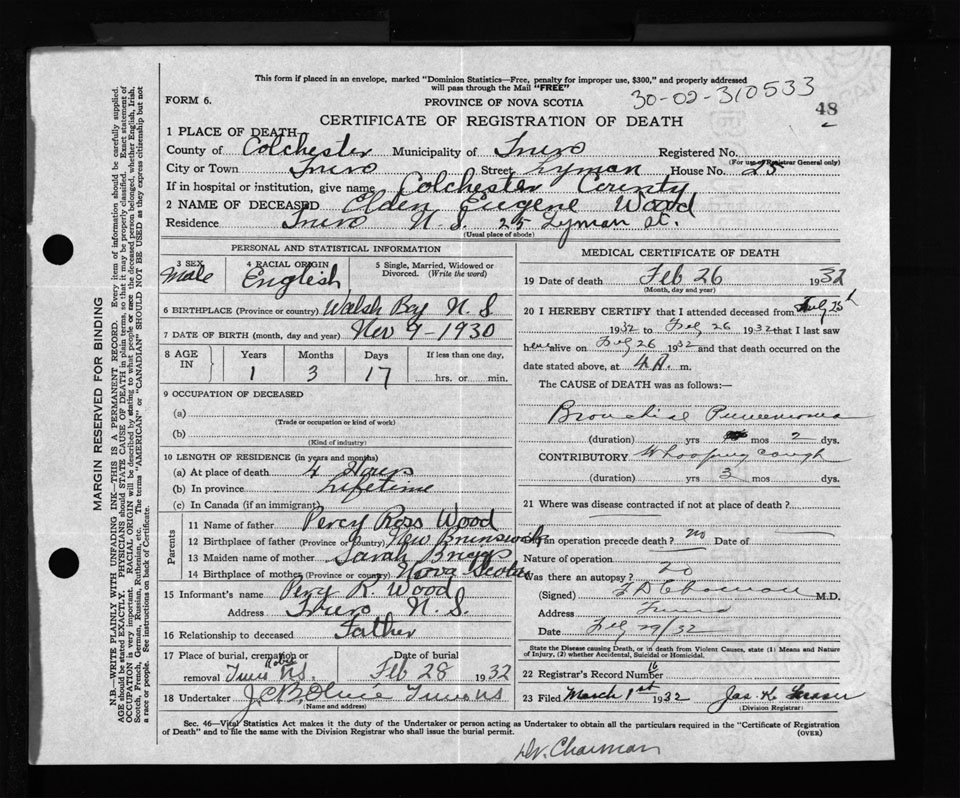 This form if placed in an envelope, marked "Dominion Statistics—Free, penalty for improper use, $300," and properly addressed
will pass through the Mail "FREE"
30-02-310533
48
FORM 6.
PROVINCE OF NOVA SCOTIA
CERTIFICATE OF REGISTRATION OF DEATH
1 PLACE OF DEATH
County of Colchester Municipality of Truro Registered No.
(For use of Registrar General only)
City or Town Truro Street Lyman House No. 25
If in hospital or institution, give name Colchester County
2 NAME OF DECEASED Elden Eugene Wood
Residence Truro N.S. 25 Lyman St.
(Usual place of abode)
PERSONAL AND STATISTICAL INFORMATION
3 SEX Male
4 RACIAL ORIGIN English
5 Single, Married, Widowed or Divorced. (Write the word)
6 BIRTHPLACE (Province or country) N.S
7 DATE OF BIRTH (month, day and year) Nov 9-1930
8 AGE IN
Years Months Days If less than one day,
1 3 17 hrs. or min.
9 OCCUPATION OF DECEASED
(a)
(Trade or occupation or kind of work)
(b)
(Kind of industry)
10 LENGTH OF RESIDENCE (in years and months)
(a) At place of death 4 Hours
(b) In province Lifetime
(c) In Canada (if an immigrant)
Parents
11 Name of father Percy Ross Wood
12 Birthplace of father (Province or country) New Brunswick
13 Maiden name of mother Sarah Briggs
14 Birthplace of mother (Province or country) Nova Scotia
15 Informant's name Percy R. Wood
Address Truro N.S.
16 Relationship to deceased Father
17 Place of burial, cremation or removal Truro N.S.
Date of burial Feb 28 1932
18 Undertaker Truro NS
(Name and address)
MEDICAL CERTIFICATE OF DEATH
19 Date of death Feb 26 1932
(Month, day and year)
20 I HEREBY CERTIFY that I attended deceased from Feb 25th
1932 to Feb 26 1932 that I last saw
h alive on Feb 26 1932 and that death occurred on the
date stated above, at 4 A. m.
The CAUSE of DEATH was as follows:—
Bronchial Pneumonia
(duration) yrs mos 2 dys.
CONTRIBUTORY Whooping cough
(duration) yrs 3 mos dys.
21 Where was disease contracted if not at place of death?
Did an operation precede death? no Date of
Nature of operation
Was there an autopsy? no
(Signed) M.D.
Address Truro
Date Feb 29/32
State the Disease causing Death, or in death from Violent Causes, state (1) Means and Nature
of Injury, (2) whether Accidental, Suicidal or Homicidal.
22 Registrar's Record Number 16
23 Filed March 1st 1932 Jas. K. Fraser
(Division Registrar)
Sec. 46—Vital Statistics Act makes it the duty of the Undertaker or person acting as Undertaker to obtain all the particulars required in the "Certificate of Registration
of Death" and to file the same with the Division Registrar who shall issue the burial permit.
(OVER)
Dr. Charman
MARGIN RESERVED FOR BINDING
N.B.—WRITE PLAINLY WITH UNFADING INK—THIS IS A PERMANENT RECORD. Every item of information should be carefully supplied.
AGE should be stated EXACTLY. PHYSICIANS should STATE CAUSE OF DEATH in plain terms, so that it may be properly classified. Exact statement of
OCCUPATION is very important. RACIAL ORIGIN will be described by stating to what people or race the deceased person belonged, whether English, Irish,
Scotch, French, German, Russian, Ruthenian, etc. The terms "AMERICAN" or "CANADIAN" SHOULD NOT BE USED as they express citizenship but not
a race or people. See instructions on back of Certificate.